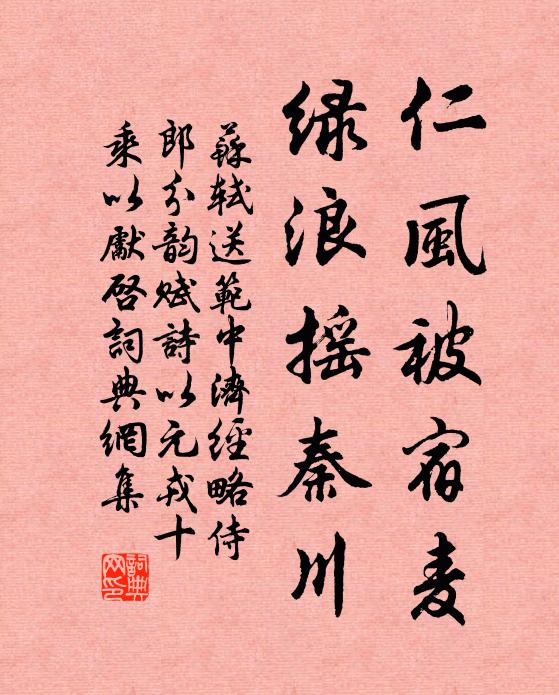 仁風被宿麦
绿浪摇秦川
蘇軾送範中濟經略侍
郎分韵赋詩以元戎十
乘以勵啓詞典網集
詞典
网印